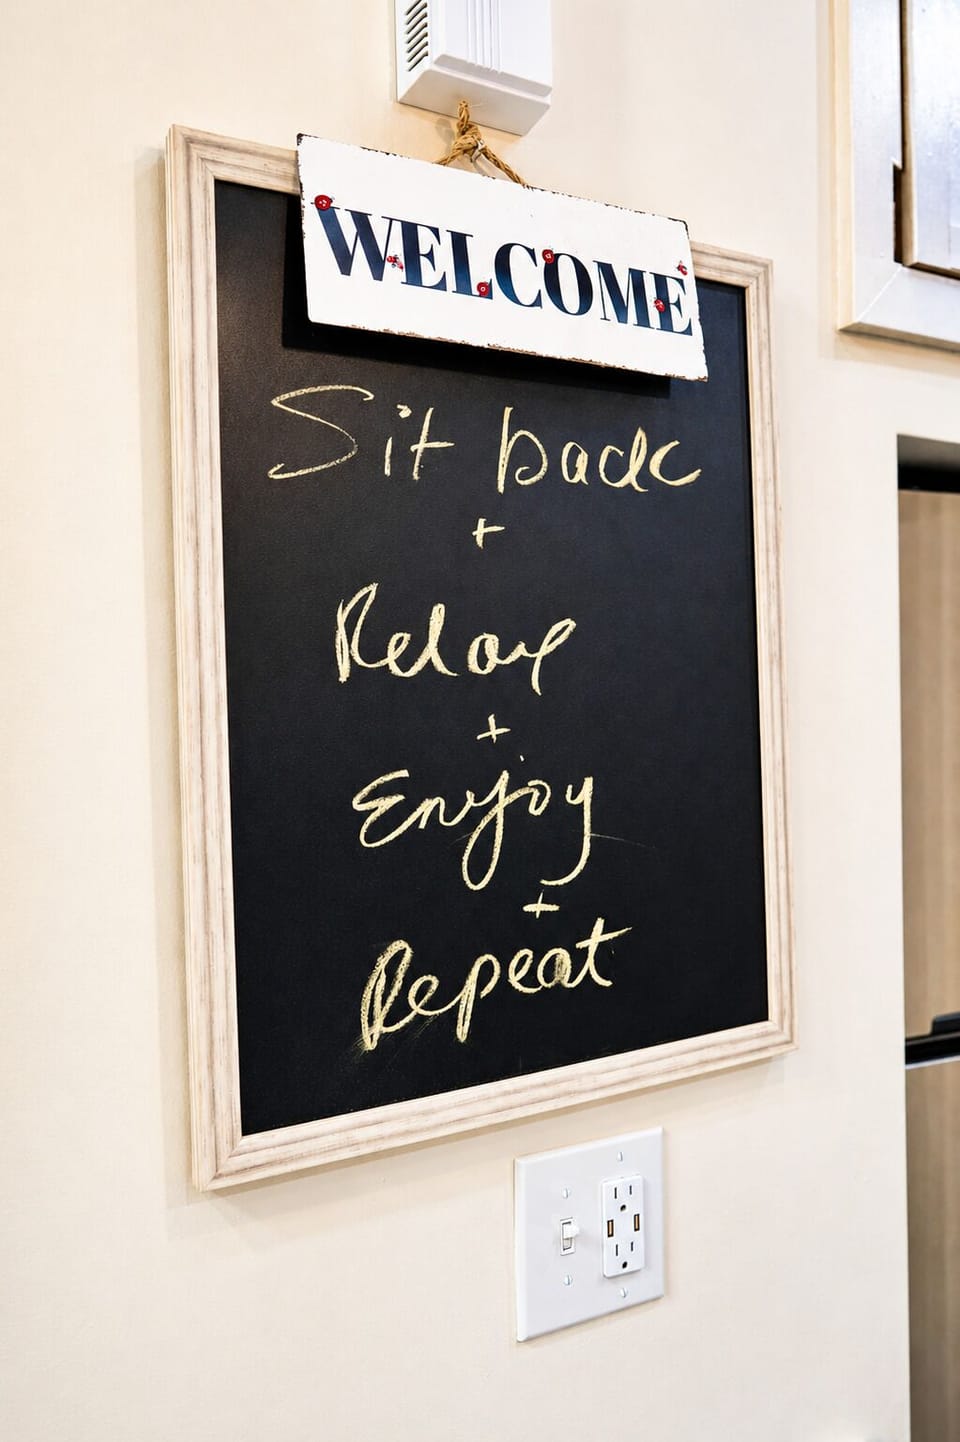 WELCOME
Sit back
+
Relax
+
Enjoy
+
Repeat